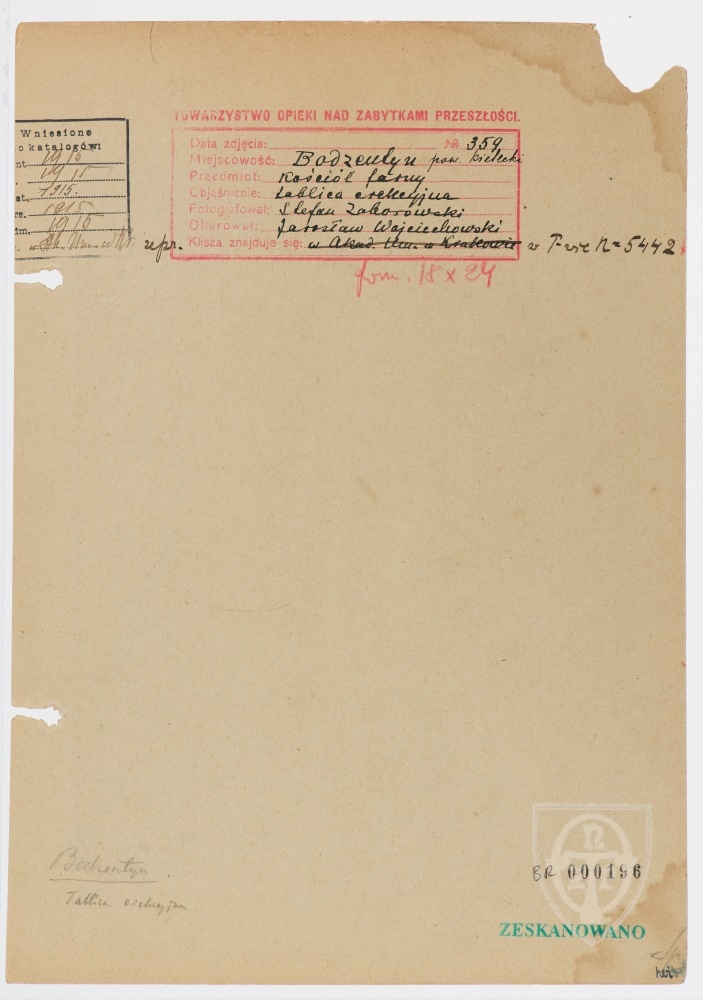 TOWARZYSTWO OPIEKI NAD ZABYTKAMI PRZESZŁOŚCI.
Wniesiono
o katalogów:
nt 1915
1915
st. 1915.
re. 1915
im. 1915
repr.
Data zdjęcia: № 359
Miejscowość: Bodzentyn pow. Kielecki
Przedmiot: Kościół farny
Objaśnienie: tablica erekcyjna
Fotografował: Stefan Zaborowski
Ofiarował: Jarosław Wojciechowski
Klisza znajduje się: w Akad. Um. w Krakowie w T-wie N=5442
form. 18 x 24
Bodzentyn
Tablica erekcyjna
BR 000196
ZESKANOWANO